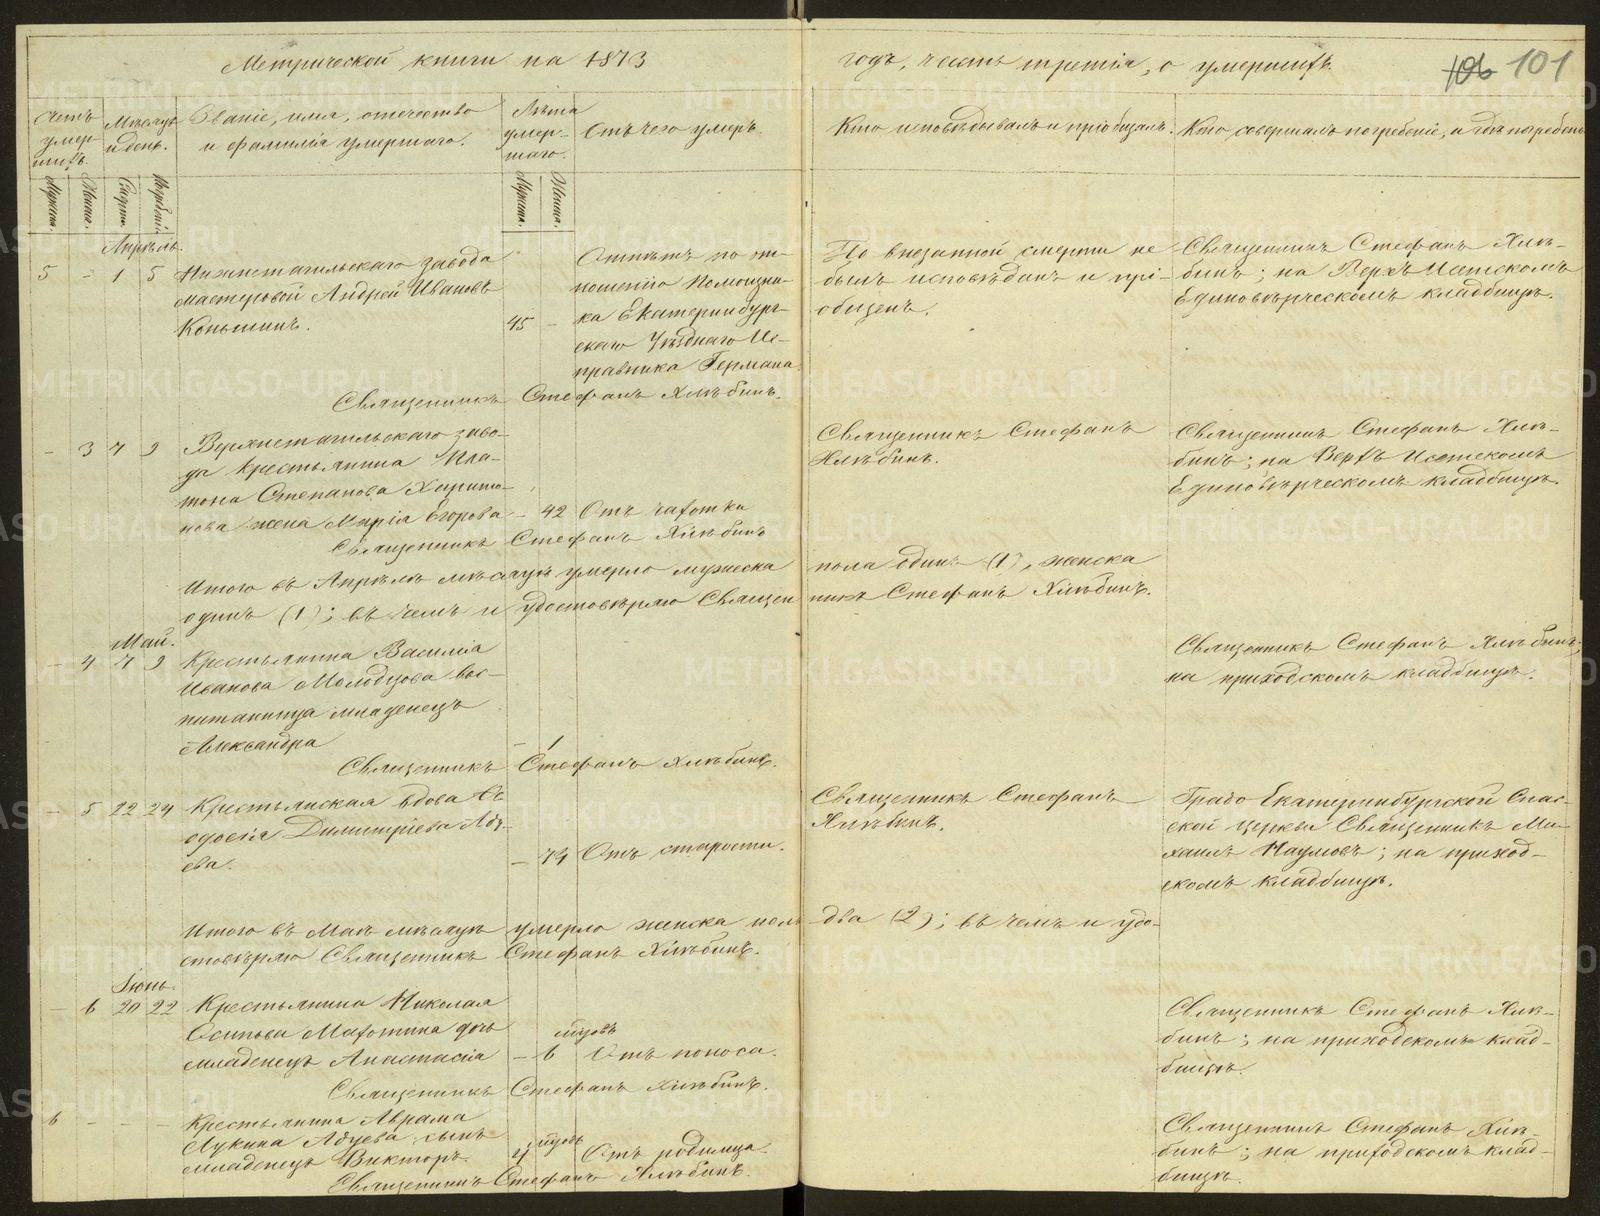 Метрической книги на 1873
годъ, часть третія, о умершихъ.
106 101
Счетъ умершихъ.
Мѣсяцъ и день.
Званіе, имя, отечество
и фамилія умершаго.
Лѣта умершаго.
Отъ чего умеръ.
Кто исповѣдывалъ и пріобщалъ.
Кто совершалъ погребеніе, и гдѣ погребенъ
Мужеска. Женска. Смерти. Погребенія. Мужеска. Женска.
Апрѣль.
5 - 1 5 Нижнетагильскаго завода
мастеровой Андрей Ивановъ
Коньшинъ.
45 -
Отпѣтъ по от-
ношенію Помощни-
ка Екатеринбург-
скаго Уѣзднаго Ис-
правника Германа.
По внезапной смерти не
былъ исповѣданъ и прі-
общенъ.
Священникъ Стефанъ Хлѣ-
бинъ; на Верхъ-Исетскомъ
Единовѣрческомъ кладбищѣ.
Священникъ Стефанъ Хлѣбинъ.
- 3 7 9 Верхнетагильскаго заво-
да крестьянина Пла-
тона Степанова Харито-
нова жена Марія Егорова - 42 Отъ чахотки
Священникъ Стефанъ
Хлѣбинъ.
Священникъ Стефанъ Хлѣ-
бинъ; на Верхъ-Исетскомъ
Единовѣрческомъ кладбищѣ.
Священникъ Стефанъ Хлѣбинъ
Итого въ Апрѣлѣ мѣсяцѣ умерло мужеска пола одинъ (1), женска
одинъ (1); въ чемъ и удостовѣряю Священникъ Стефанъ Хлѣбинъ.
Май.
- 4 7 9 Крестьянина Василія
Иванова Молодцова вос-
питанница младенецъ
Александра - 1
Священникъ Стефанъ Хлѣбинъ;
на приходскомъ кладбищѣ.
Священникъ Стефанъ Хлѣбинъ.
- 5 22 24 Крестьянская вдова Ѳе-
одосія Димитріева Абу-
ева. - 74 Отъ старости.
Священникъ Стефанъ
Хлѣбинъ.
Градо Екатеринбургской Спас-
ской церкви Священникъ Ми-
хаилъ Наумовъ; на приход-
скомъ кладбищѣ.
Итого въ Маѣ мѣсяцѣ умерло женска пола два (2); въ чемъ и удо-
стовѣряю Священникъ Стефанъ Хлѣбинъ.
Іюнь.
- 6 20 22 Крестьянина Николая
Осипова Махотина дочь
младенецъ Анастасія - 6 Отъ поноса.
Священникъ Стефанъ Хлѣ-
бинъ; на приходскомъ клад-
бищѣ.
Священникъ Стефанъ Хлѣбинъ.
6 - - - Крестьянина Аврама
Лукина Абуева сынъ
младенецъ Викторъ. Отъ родимца.
Священникъ Стефанъ Хлѣ-
бинъ; на приходскомъ клад-
бищѣ.
Священникъ Стефанъ Хлѣбинъ.
METRIKI.GASO-URAL.RU